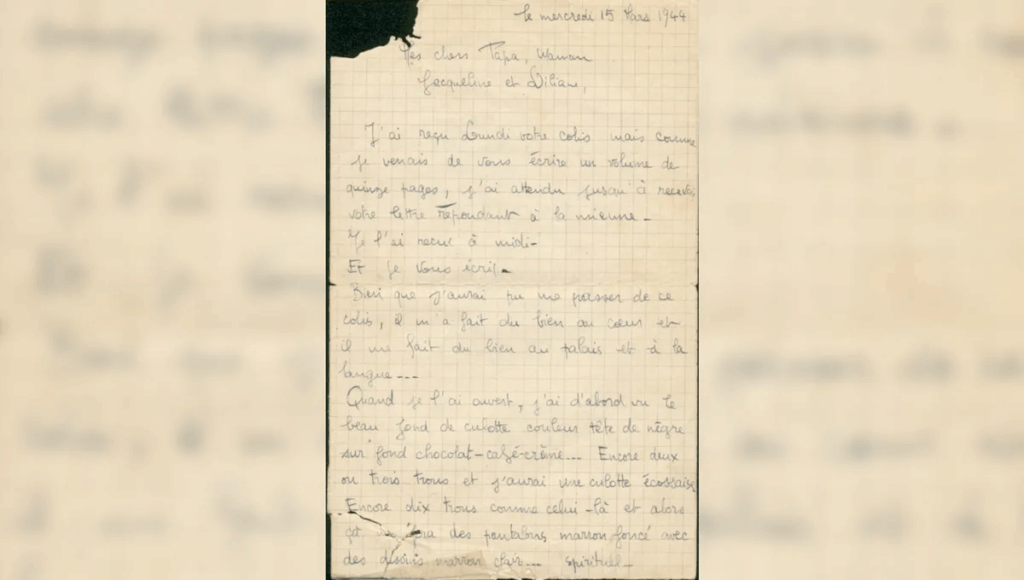 Le mercredi 15 Mars 1944
Mes chers Papa, Maman
Jacqueline et Liliane,
J'ai reçu Lundi votre colis mais comme
je venais de vous écrire un volume de
quinze pages, j'ai attendu jusqu'à recevoir
votre lettre répondant à la mienne -
Je l'ai recue à midi -
Et je vous écris -
Bien que j'aurai pu me passer de ce
colis, il m'a fait du bien au cœur et
il me fait du bien au palais et à la
langue ---
Quand je l'ai ouvert, j'ai d'abord vu le
beau fond de culotte couleur tête de nègre
sur fond chocolat-café-crème --- Encore deux
ou trois trous et j'aurai une culotte écossaise
Encore dix trous comme celui-là et alors
ça fera des pantalons marron foncé avec
des dessins marron clair --- spirituel -